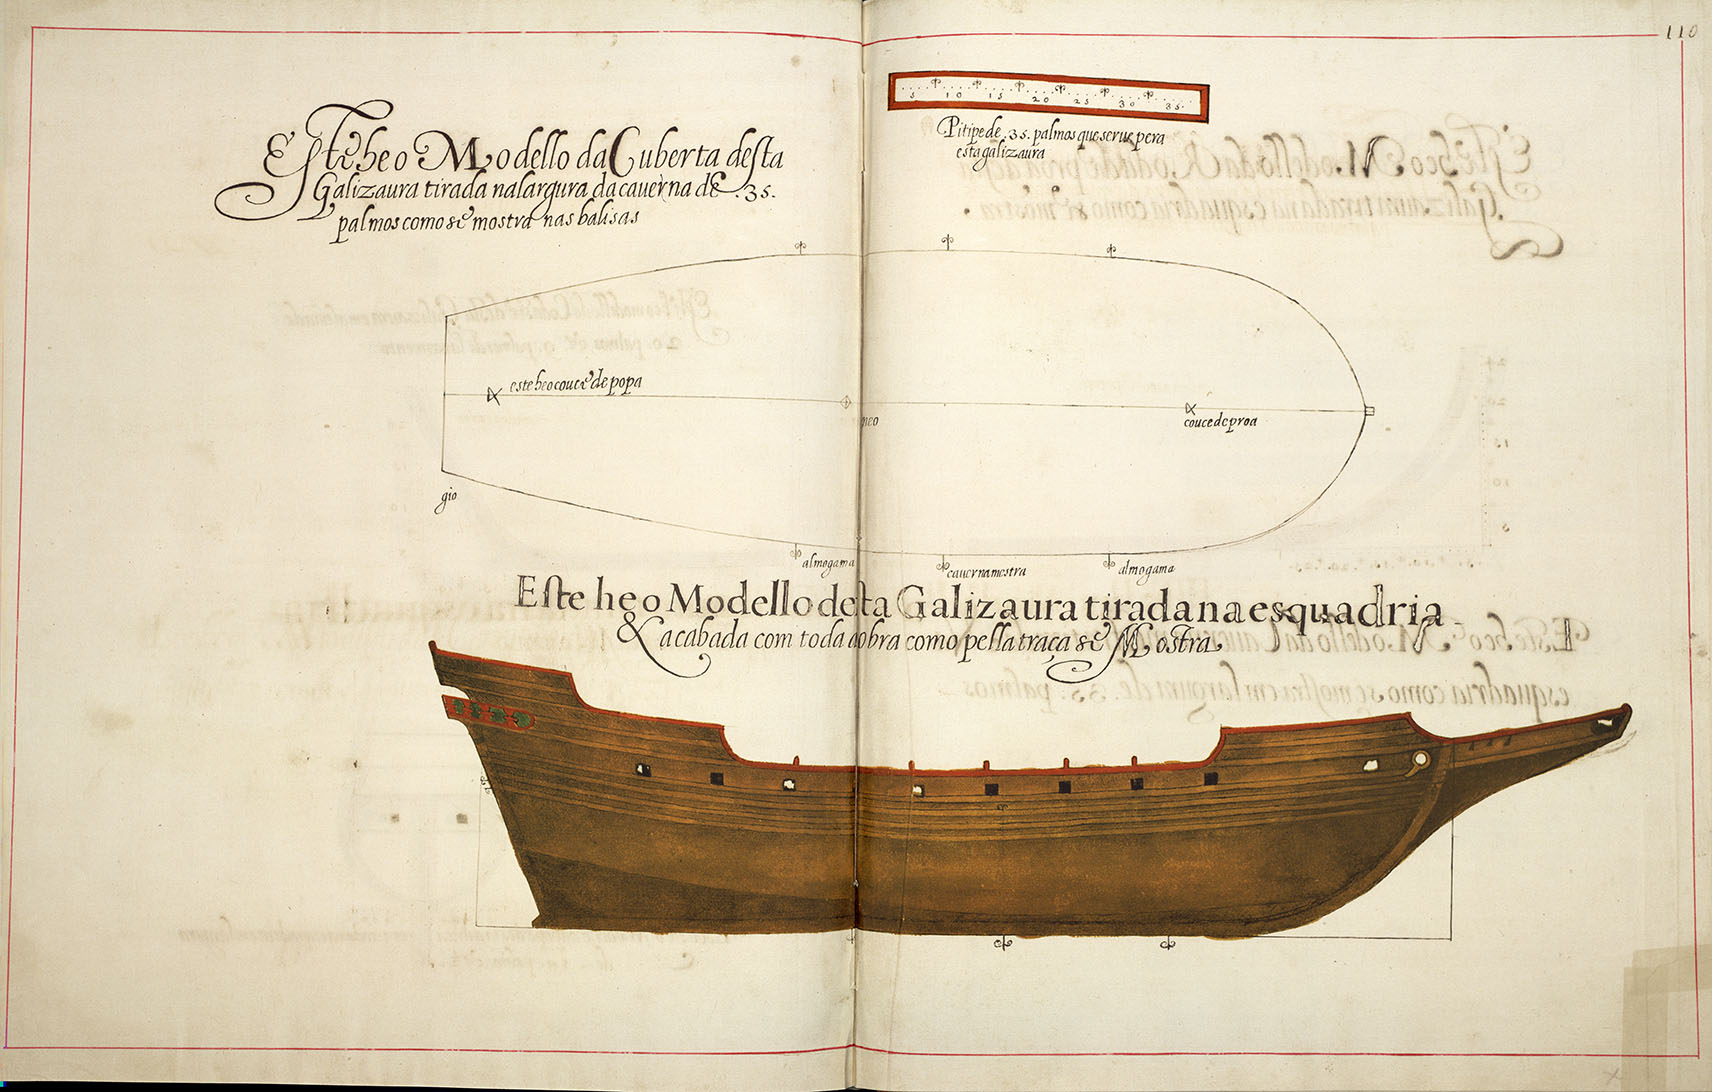 110
5 10 15 20 25 30 35
Pitipe de .35. palmos que serue pera
esta galizaura
Este he o Modello da Cuberta desta
Galizaura tirada na largura da cauerna de .35.
palmos como se mostra nas balisas
este he o couce de popa
meo
couce de proa
gio
almogama
cauerna mestra
almogama
Este he o Modello desta Galizaura tirada na esquadria
& acabada com toda a obra como pella traça se Mostra